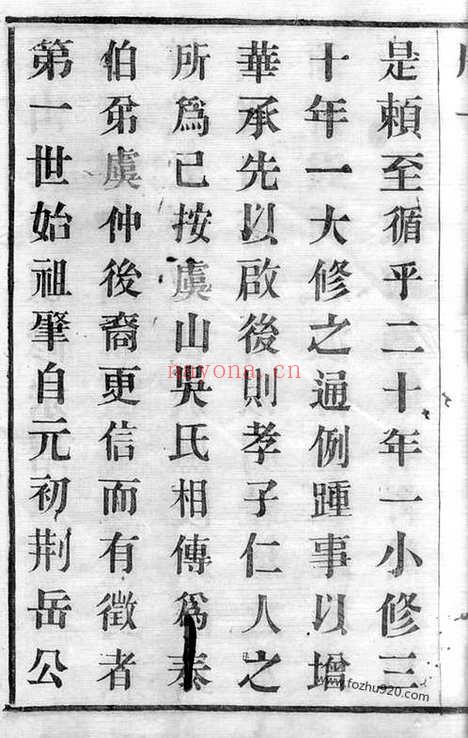 是頼至循乎二十年一小修三
十年一大修之通例踵事以增
華承先以啟後則孝子仁人之
所爲已按虞山吳氏相傳爲泰
伯弟虞仲後裔更信而有徵者
第一世始祖肇自元初荆岳公
nayona.cn
www.fozhu920.com